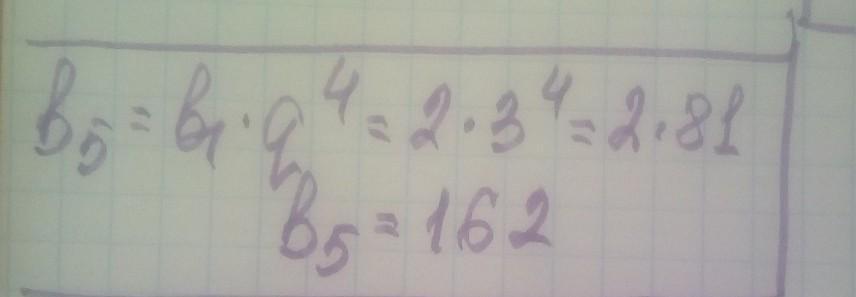 b₅ = b₁ · q⁴ = 2 · 3⁴ = 2 · 81
b₅ = 162